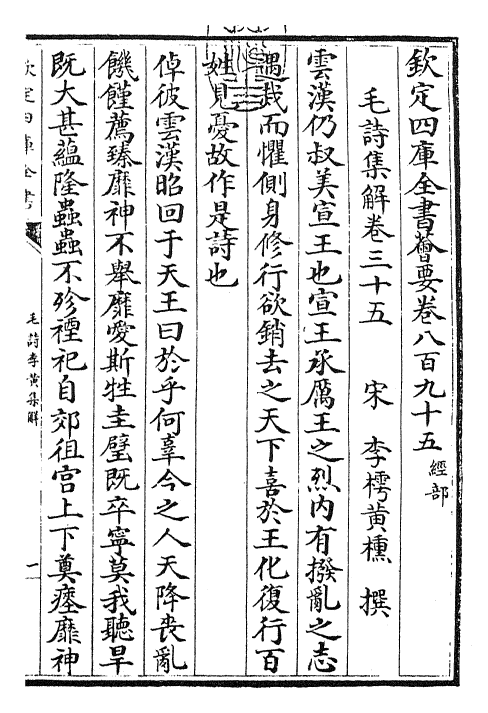 欽定四庫全書薈要卷八百九十五 經部
毛詩集解卷三十五 宋 李樗黃櫄 撰
雲漢仍叔美宣王也宣王承厲王之烈内有撥亂之志
遇烖而懼側身修行欲銷去之天下喜於王化復行百
姓見憂故作是詩也
倬彼雲漢昭回于天王曰於乎何辜今之人天降喪亂
饑饉薦臻靡神不舉靡愛斯牲圭璧既卒寧莫我聽旱
既大甚蘊隆蟲蟲不殄禋祀自郊徂宫上下奠瘞靡神
欽定四庫全書
毛詩李黃集解
一